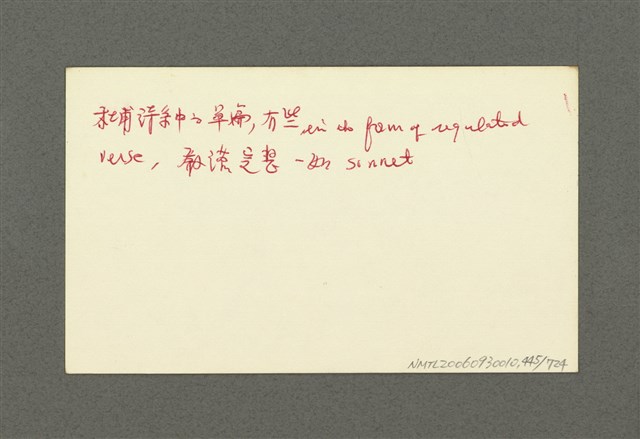 杜甫詩集中之單篇,有些,in the form of regulated
verse, 一如 sonnet
NMTL20060930010,445/724